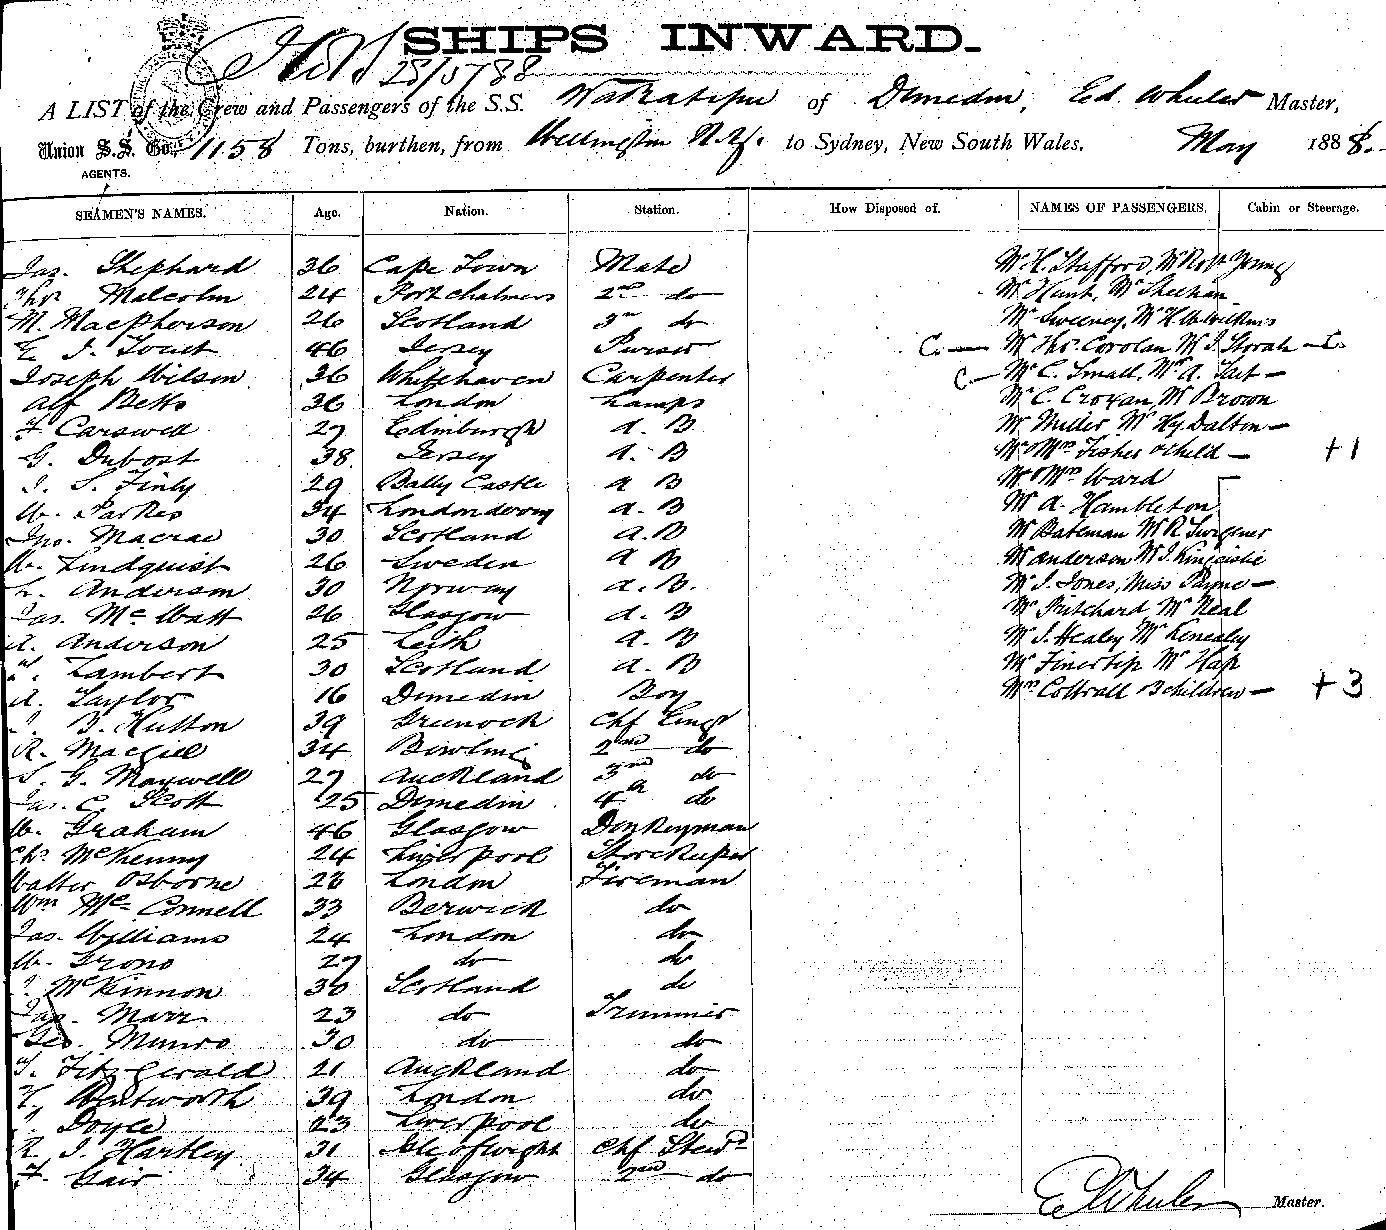 SHIPS INWARD.
28/5/88
A LIST of the Crew and Passengers of the S.S. Wakatipu of Dunedin, Ed Wheeler Master,
Union S.S. Co., 1158 Tons, burthen, from Wellington N.Z. to Sydney, New South Wales. May 1888.
AGENTS.
SEAMEN'S NAMES. Age. Nation. Station. How Disposed of. NAMES OF PASSENGERS. Cabin or Steerage.
Jas. Shephard 36 Cape Town Mate Mr H. Stafford, Mr Robt Young
Thos Malcolm 24 Port Chalmers 2nd do Mr Hunt, Mr Sheehan
M. Macpherson 26 Scotland 3rd do Mr Sweeney, Mr H. Wilkins
E J. 46 Jersey Purser C. — Mr Thos. Corolan Mr J. Storah — C.
Joseph Wilson 36 Whitehaven Carpenter C. — Mr C. Small, Mr A. Tait —
Alf Betts 36 London Lamps Mr C. Croyan, Mr Brown
F Carswell 27 Edinburgh A. B Mr Miller Mr Hy Dalton —
G. Dubost 38 Jersey A. B Mr & Mrs Fisher & Child — +1
J. S. Finly 29 Bally Castle A B Mr & Mrs Ward
W. Parkes 34 Londonderry A. B Mr A. Hambleton
Jno. Macrae 30 Scotland A. B Mr Bateman Mr R
A. Lindquist 26 Sweden A B Mr Anderson Mr J.
L. Anderson 30 Norway A. B. Mr J. Jones, Miss Payne —
Jas. McWatt 26 Glasgow A. B Mr Pritchard Mr Neal
A. Anderson 25 Leith A. B Mr J. Healey Mr Kenealey
Lambert 30 Scotland A. B Mr Mr
A. Taylor 16 Dunedin Boy Mrs Cottrall 3 children — +3
J. B. Hutton 39 Greenock Chf Engr
R. Macgill 34 Bowling 2nd do
S. G. Maxwell 27 Auckland 3rd do
Jas. C. Scott 25 Dunedin 4th do
W. Graham 46 Glasgow Donkeyman
Chs McKenny 24 Liverpool Storekeeper
Walter Osborne 28 London Fireman
Wm McConnell 33 Berwick do
Jas. Williams 24 London do
W. Grono 27 do do
McKinnon 30 Scotland do
Jas. Marr 23 do Trimmer
Geo. Munro 30 do do
T. Fitzgerald 21 Auckland do
Wentworth 39 London do
Doyle 23 Liverpool do
R. J. Hartley 31 Isle of Wight Chf Stewd
F. Gair 34 Glasgow 2nd do
E Wheeler Master.